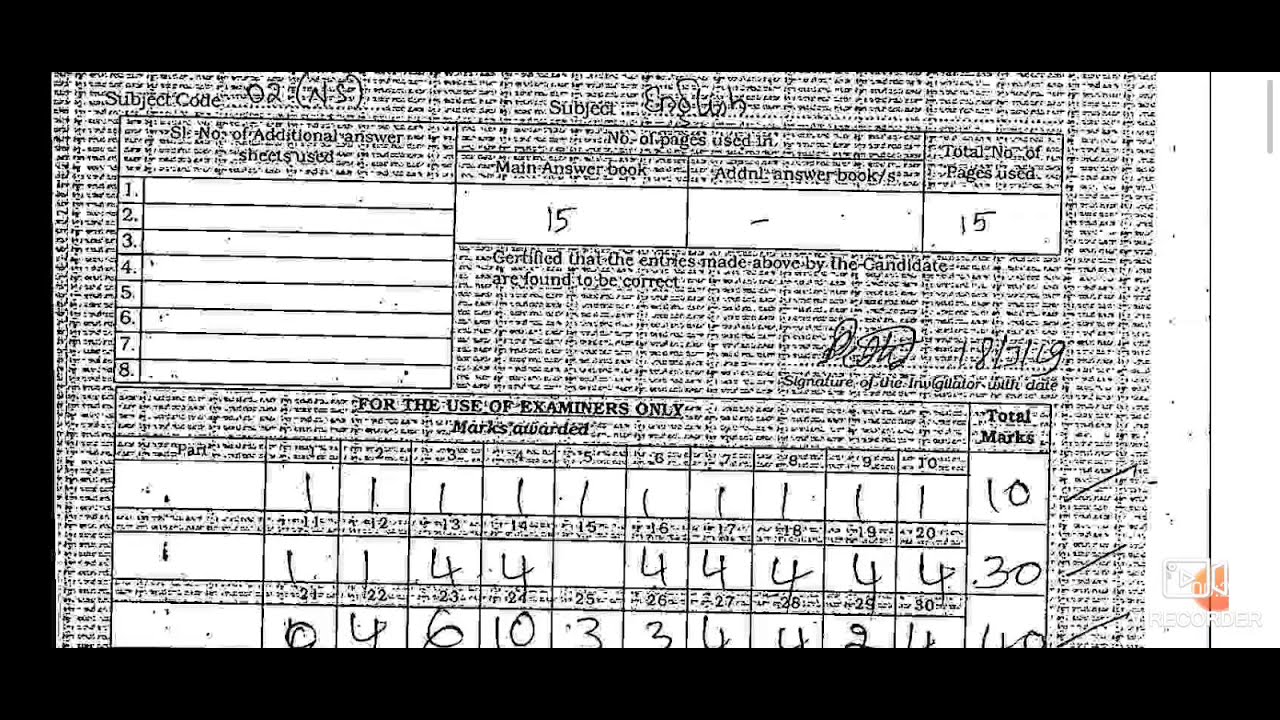 Subject Code 02 (N.S) Subject : English
Sl. No. of Additional answer sheets used
No. of pages used in
Main Answer book Addnl. answer book/s
Total No. of Pages used
1.
2.
3.
4.
5.
6.
7.
8.
15 - 15
Certified that the entries made above by the Candidate
are found to be correct
18/3/19
Signature of the Invigilator with date
FOR THE USE OF EXAMINERS ONLY
Marks awarded
Total Marks
Part 1 2 3 4 5 6 7 8 9 10
1 1 1 1 1 1 1 1 1 1 10
11 12 13 14 15 16 17 18 19 20
1 1 4 4 4 4 4 4 4 30
21 22 23 24 25 26 27 28 29 30
0 4 6 10 3 3 4 4 2 4 40
RECORDER